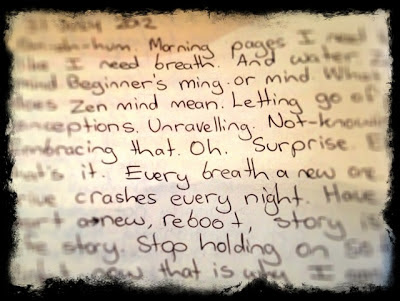 hum. Morning pages I need
like I need breath. And water
mind Beginner's ming or mind. What
does Zen mind mean. Letting go of
conceptions. Unravelling. Not-knowing
embracing that. Oh. Surprise.
that's it. Every breath a new one
crashes every night. Have
new, reboot, story is
the story. Stop holding on so
now that is why I